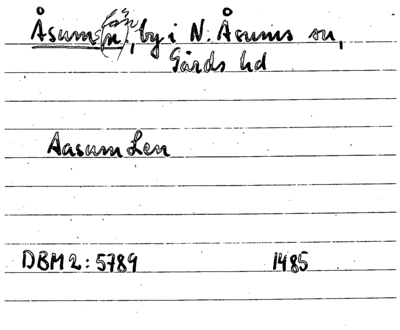 Åsums län (n), by i N. Åsums sn,
Gärds hd
Aasum Len
DBM 2: 5789 1485